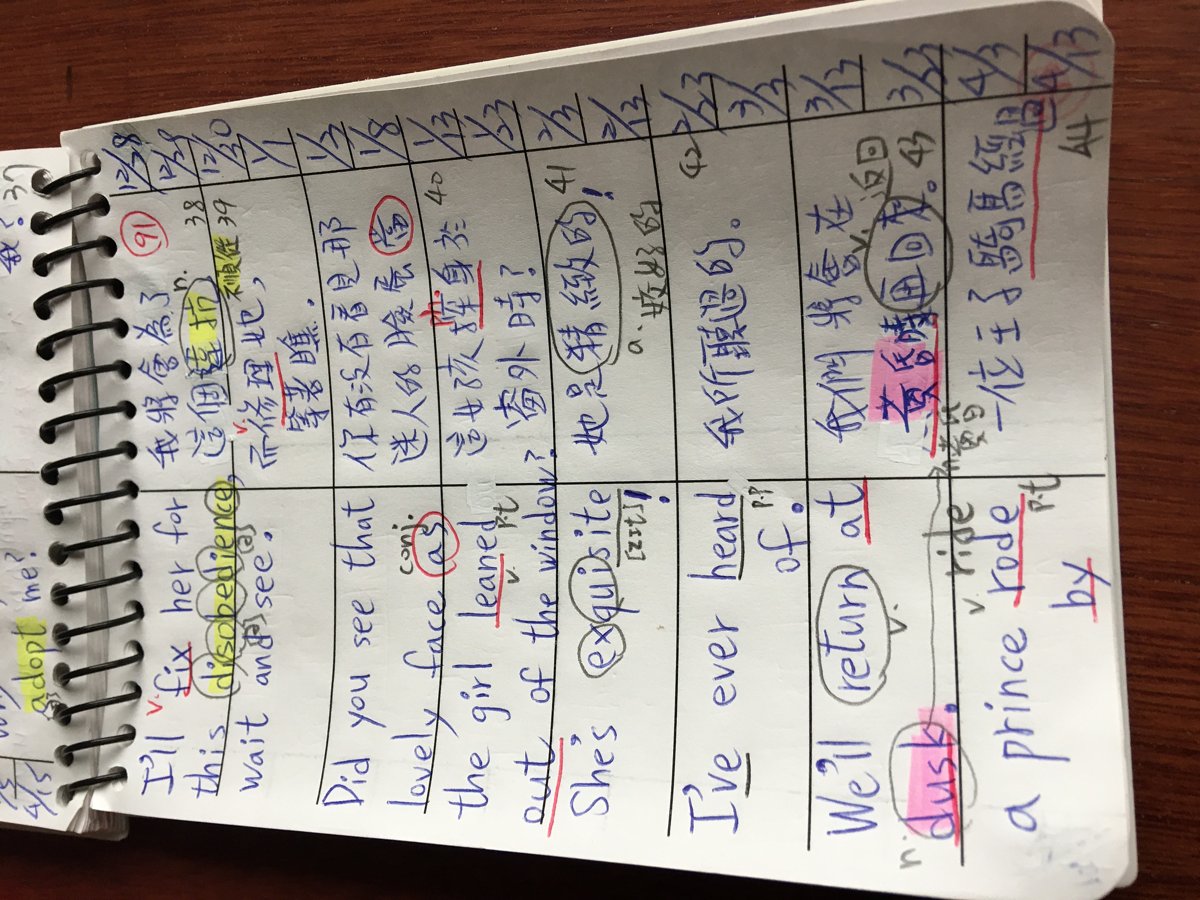 adopt me?
4/15
37
I'll fix her for
v.
this disobedience,
wait and see.
我將會為了
這個違抗
n.
不順從
而修理她,
v.
等著瞧.
91
38
39
12/28
12/29
12/30
1/1
Did you see that
lovely face as
conj.
the girl leaned
v.
p.t
out of the window?
你有沒有看見那
迷人的臉蛋當
這女孩探身於
窗外時?
40
1/3
1/8
1/13
1/23
She's exquisite!
[zɪt]
她是精緻的!
a.姣好的
41
2/3
2/13
I've ever heard
p.p
of.
我所聽過的。
42
2/23
3/3
We'll return at
v.
dusk.
n.
我們將會在
黃昏時再回來。
v.返回
43
3/13
3/23
v. ride
a prince rode
p.t
by
一位王子騎馬經過
44
4/3
4/13